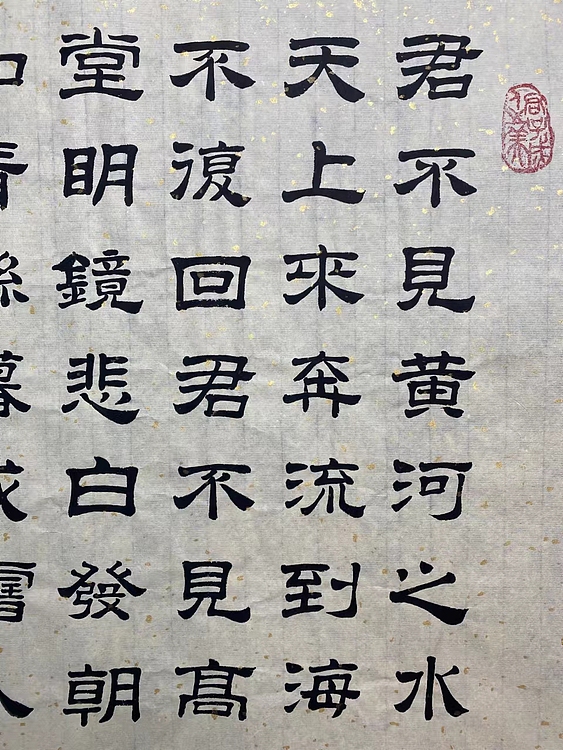 君不見黄河之水
天上來奔流到海
不復回君不見髙
堂明鏡悲白發朝
青絲暮成雪